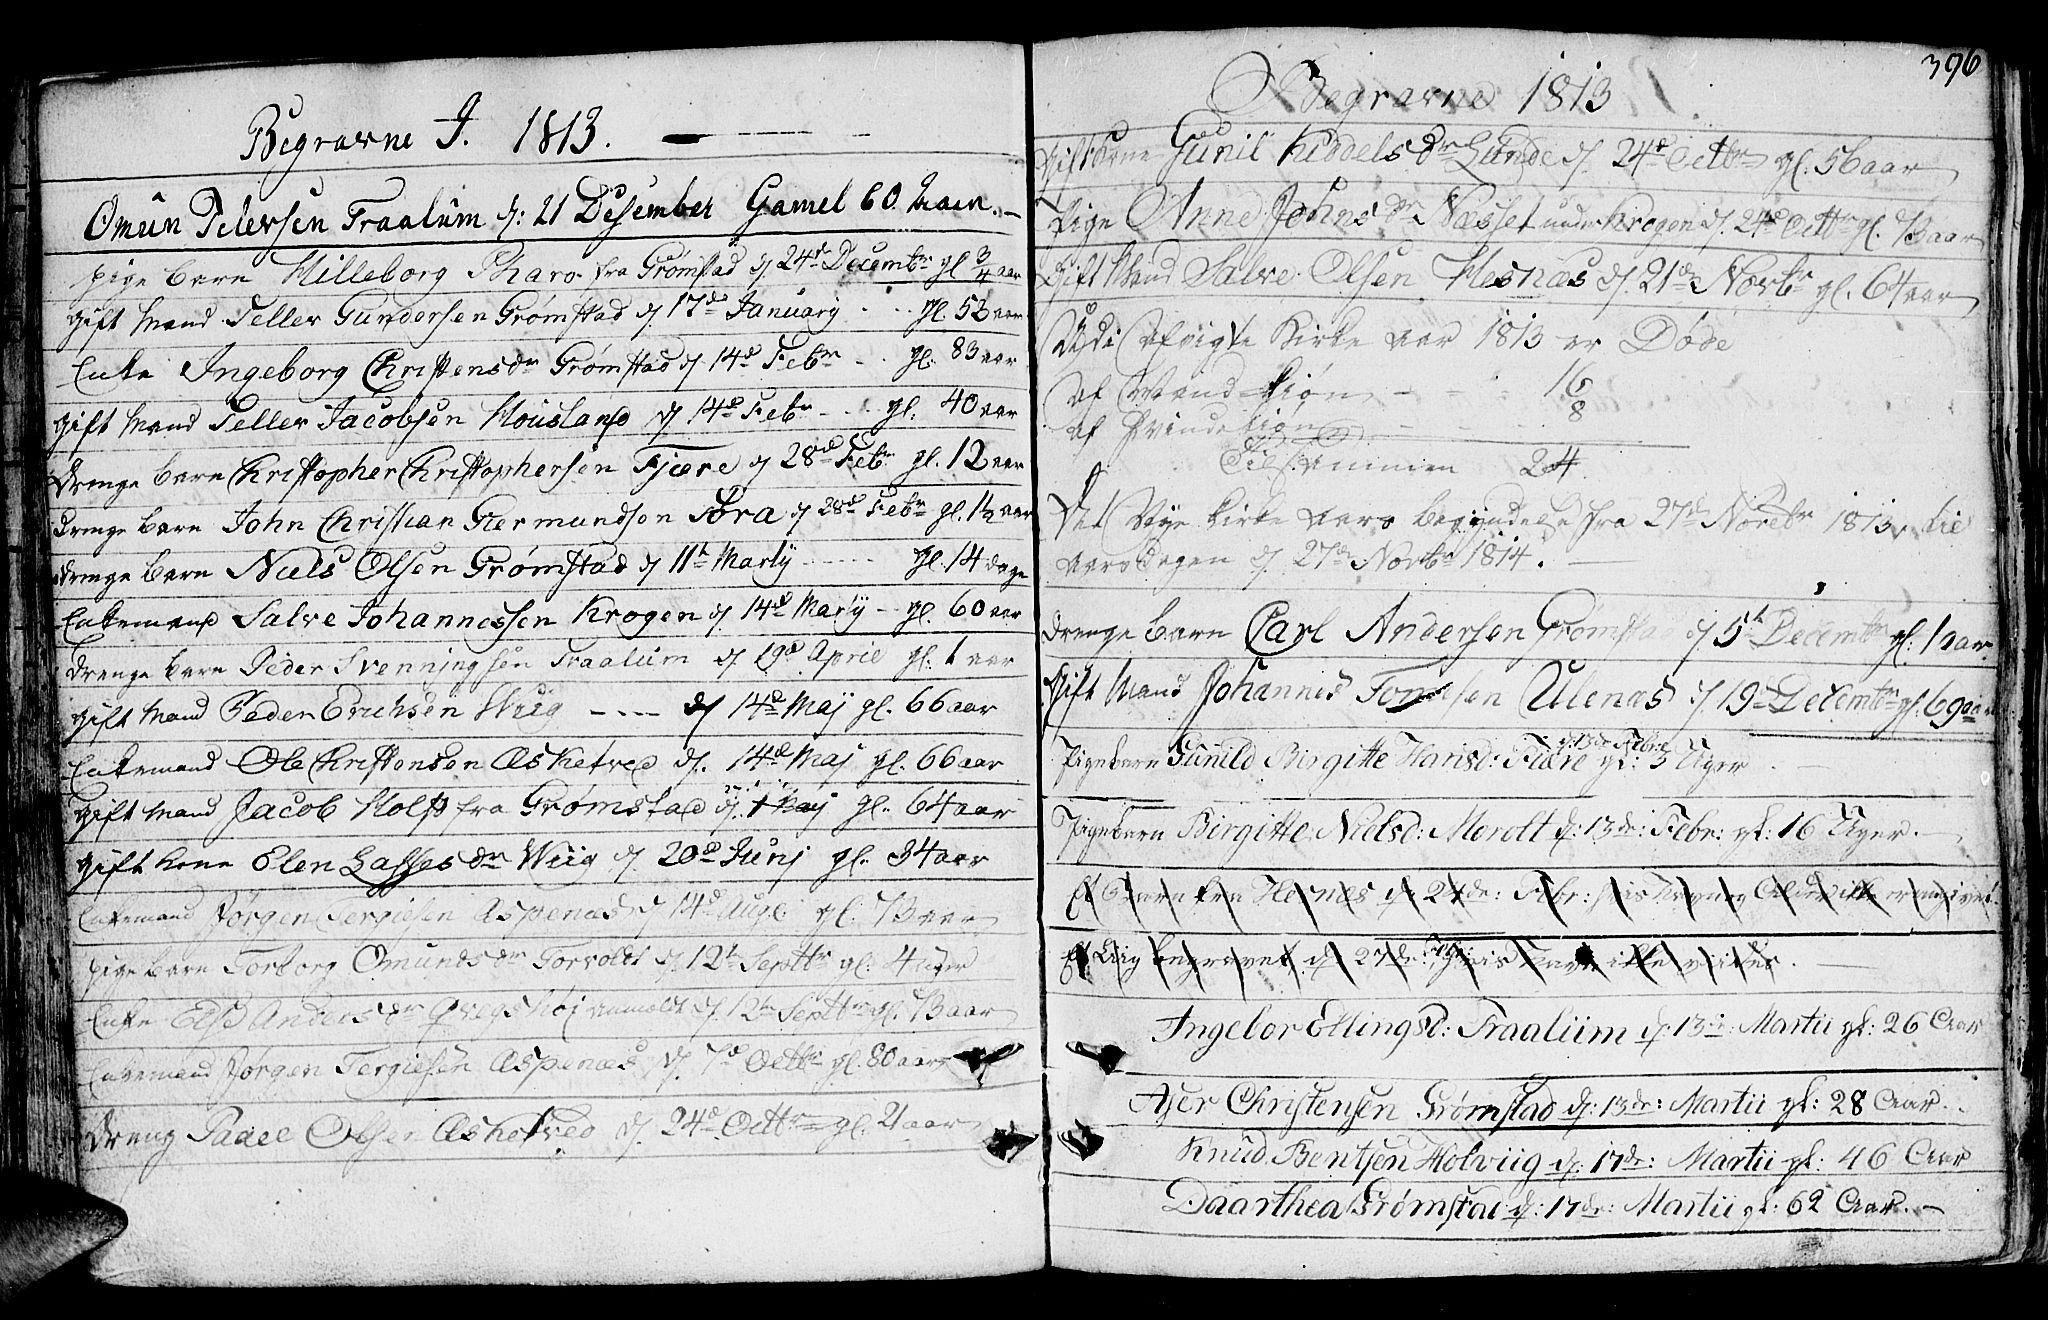 Begravne A. 1813.
Omun Petersen Traalum d: 21 Desember Gamel 60 Aaer.
pige barn Hilleborg Pharo fra Grømstad d 24de Decembr gl 3/4 aar
gift Mand Teller Gundersen Grømstad d. 17de Januarÿ gl. 52 aar
Enke Ingeborg Christensdr Grømstad d 14d Febr gl: 83 aar
gift Mand Teller Jacobsen Houstand d 14d Febr gl: 40 aar
drenge barn Christopher Christophersen Fjære d 28de Febr gl. 12 aar
drenge barn John Christian Germundsen Tøra d 28de Febr gl. 1½ aar
drenge barn Niels Olsen Grømstad d 11t Martÿ gl. 14 dage
Enkemand Salve Johannessen Krogen d. 14d Martÿ gl. 60 aar
drenge barn Peder Svenningsen Traalum d. 19d April gl: 1 aar
gift Mand Peder Erichsen Wiig d 14d Maj gl. 66 aar
Enkemand Ole Christensen Æsketved d. 14d Maj gl. 66 aar
gift Mand Jacob Holst fra Grømstad d. Maj gl. 64 aar
gift kone Elen Lassesdr Wiig d 20d Junj gl. 34 aar
Enkemand Jørgen Tergiesen Aspenæs d 14d Aug: gl. 73 aar
pige barn Torborg Omundsdr Torvoldt d 12t Septbr gl: 4 uger
Enke Else Andersdr d. 12t Septbr gl. 73 aar
Enkemand Jørgen Tergiesen Aspenæs d 7d Octbr gl. 80 aar
dreng Paael Olsen Æsketved d. 24d Octbr gl. 21 aar
396
Begravne 1813
Gift Kone Gunil Kiddelsdr Lunde d. 24d Octbr gl. 56 aar
Pige Anne Johnsdr Næsset under Krogen d. 24d Octbr gl. 73 aar
Gift Mand Salve Olsen Hesnæs d. 21de Novbr gl. 64 aar
Udi afvigte Kirke Aar 1813 er Døde
af Mand kiøn 16
af Qvinde kiøn 8
Tilsammen 24
Det Nye Kirke Aars begyndelse fra 27de Novebr 1813 til
aarsdagen d. 27de Novbr 1814.
drenge barn Carl Andersen Grømstad d 5t Decembr gl: 1 aar
Gift Mand Johannes Ulenæs d 19de Decembr gl. 69 aar
d: 13de Febr:
Pigebarn Gunild Birgitte Hansd: Fiære gl: 3 Uger
Pigebarn Birgitte Nielsd: Morolt d: 13de: Febr: gl: 16 Uger.
Et Barn fra Hesnæs d: 24de: Febr: hvis Navn og Alder ikke er angivet
Et Liig begravet d: 27de: hvis Navn ikke vides.
Ingebor Ellingsd: Traalum d: 13de: Martii gl: 26 Aar
Aser Christensen Grømstad d: 13de: Martii gl: 28 Aar.
Knud Bentsen Holviig d: 17de: Martii gl: 46 Aar
Daarthea Grømstad d: 17de: Martii gl: 62 Aar.